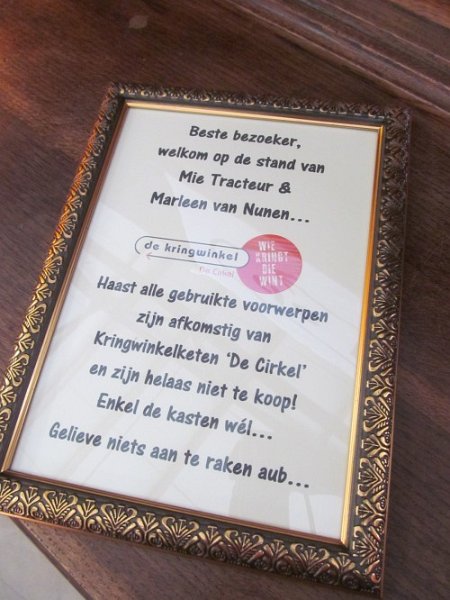 Beste bezoeker,
welkom op de stand van
Mie Tracteur &
Marleen van Nunen...
de kringwinkel
De Cirkel
WIE
KRINGT
DIE
WINT
Haast alle gebruikte voorwerpen
zijn afkomstig van
Kringwinkelketen ‘De Cirkel’
en zijn helaas niet te koop!
Enkel de kasten wél...
Gelieve niets aan te raken aub...